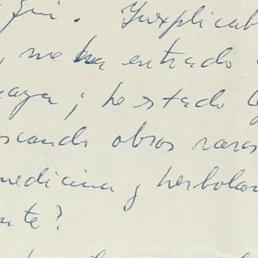 fin. Inexplicab
, no ha entrado
aya; he estado
scando obras raras
medicina y herbolar
nte?